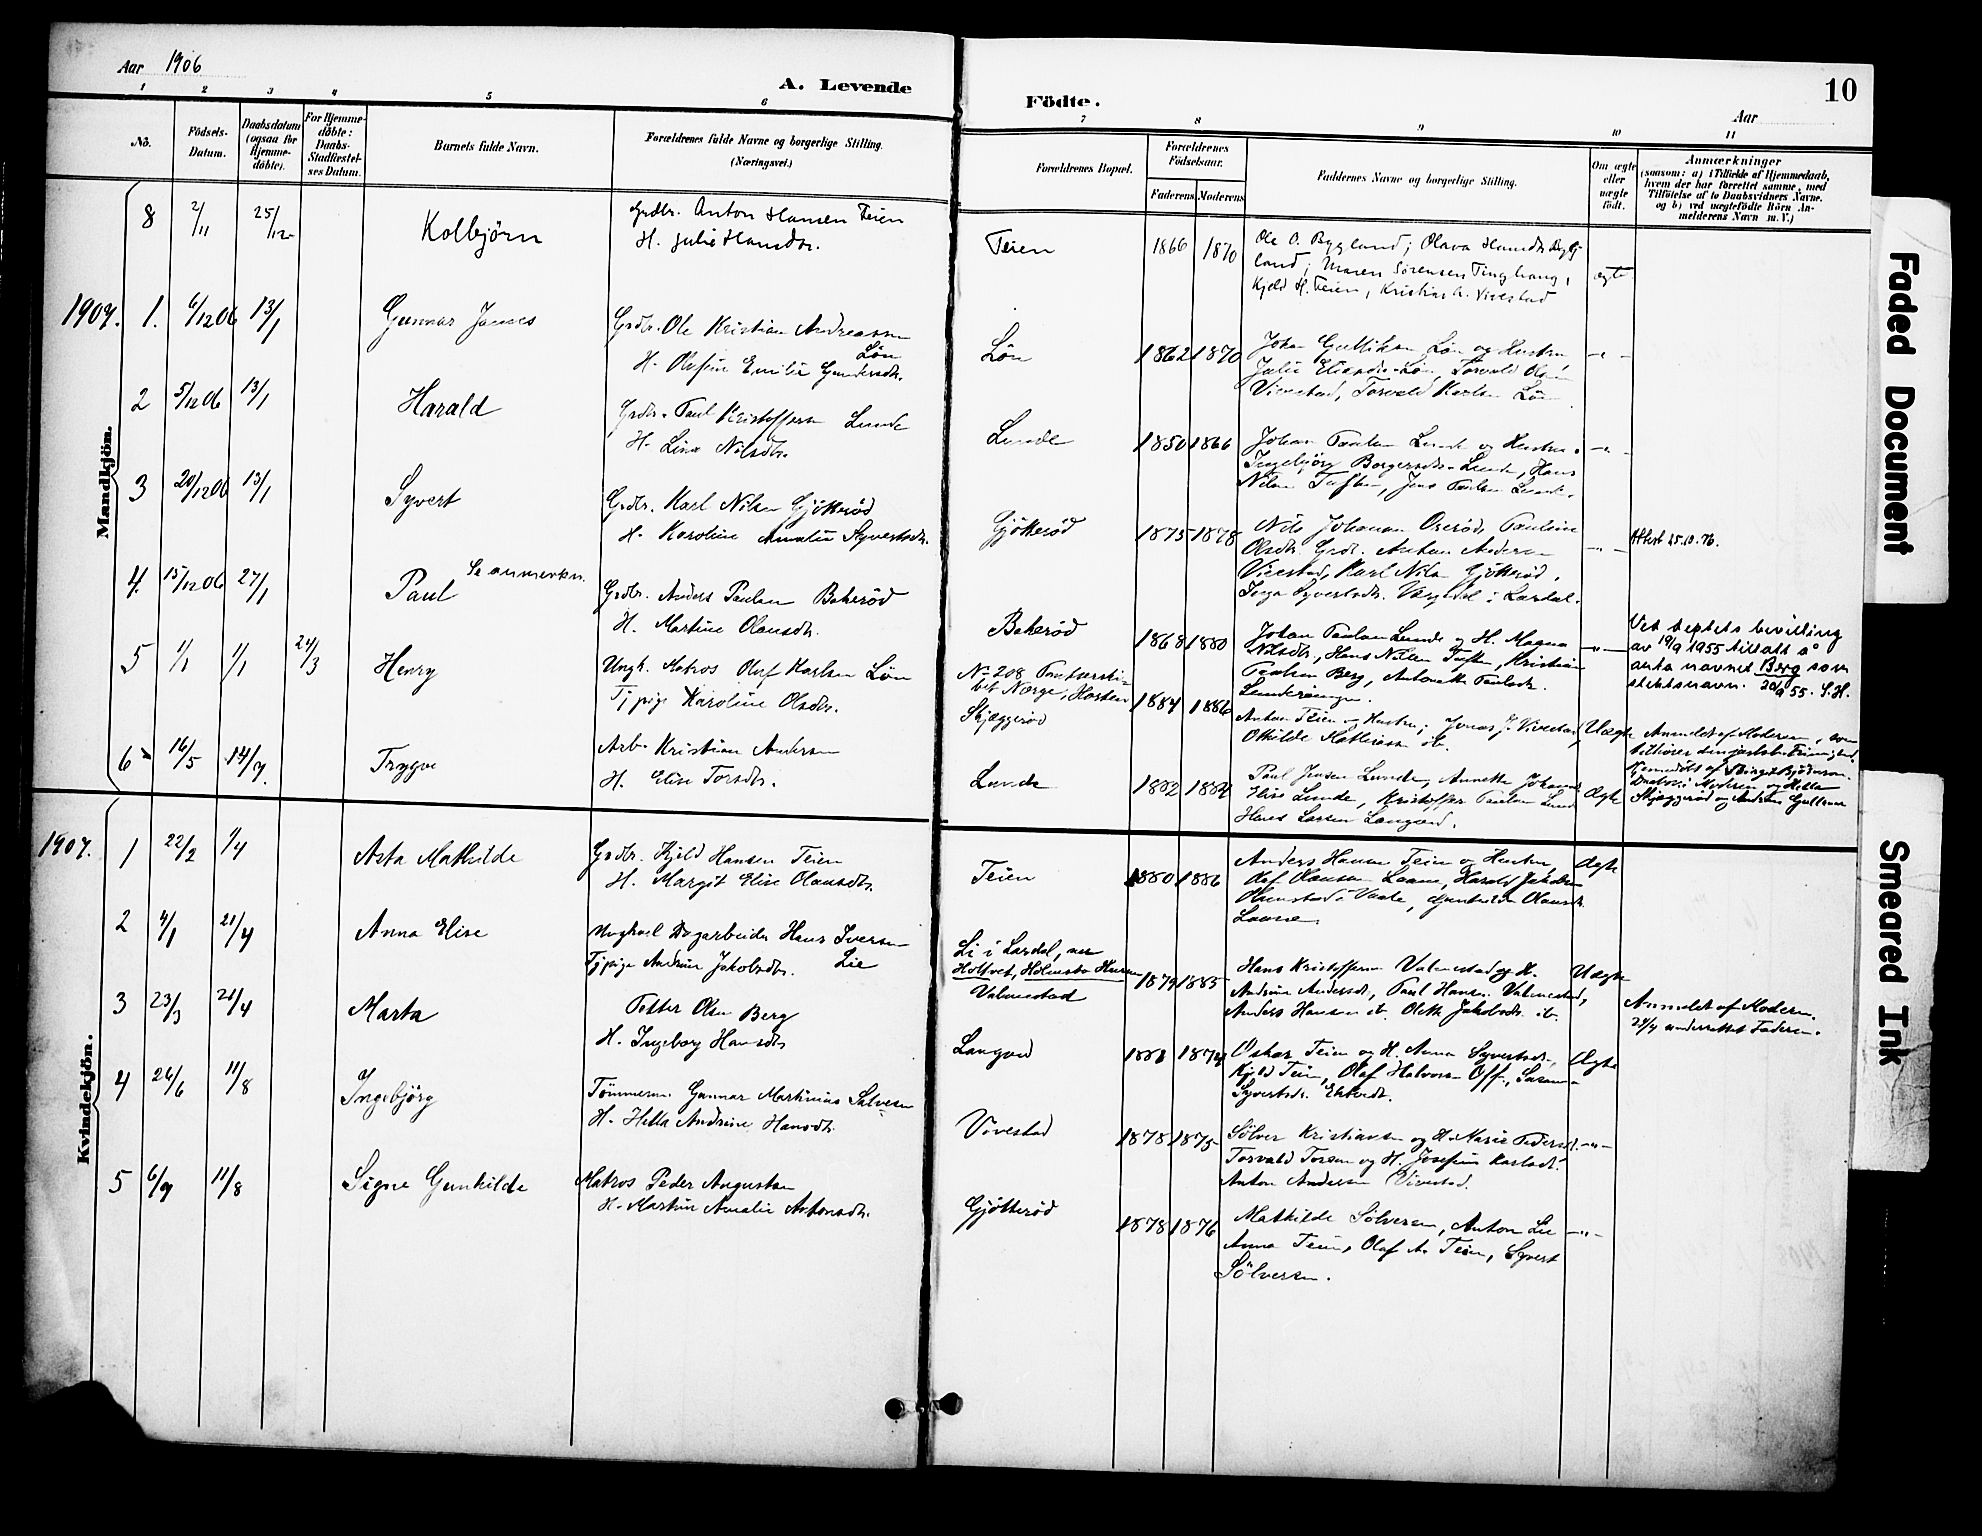 Aar 1906
A. Levende
Födte.
10
Aar
1 2 3 4 5 6 7 8 9 10 11
No.
Födsels-
Datum.
Daabsdatum
(ogsaa for
Hjemme-
døbte).
For Hjemme-
døbte:
Daabs-
Stadfæstel-
ses Datum.
Barnets fulde Navn.
Forældrenes fulde Navne og borgerlige Stilling.
(Næringsvei.)
Forældrenes Bopæl.
Forældrenes
Födselsaar.
Faderens Moderens
Faddernes Navne og borgerlige Stilling.
Om ægte
eller
uægte
födt.
Anmærkninger
(saasom: a) i Tilfælde af Hjemmedaab,
hvem der har forrettet samme, med
Tilföielse af to Daabsvidners Navne.
og b) ved uægtefödte Börn An-
melderens Navn m. V.)
Mandkjön.
8 2/11 25/12 Kolbjörn
Grdbr. Anton Hansen Teien
H. Julie Hansdtr.
Teien 1866 1870
Ole O. Bygland; Olava Hansdtr Byg-
land; Maren Sörensen Tinghaug,
Kjeld H. Teien, Kristian A. Vivestad
ægte
1907. 1. 6/12 06 13/1 Gunnar James
Grdbr. Ole Kristian Andreassen
Løn
H. Olefine Emilie Gundersdtr.
Løn 1862 1870
Johan Gulliksen Løn og Hustru
Julie Eliasdtr. Løn, Torvald Olsen
Vivestad, Torvald Karlsen Løn
-"-
2 5/12 06 13/1 Harald
Grdbr. Paul Kristoffersen Lunde
H. Lina Nilsdtr.
Lunde 1850 1866
Johan Paulsen Lunde og Hustru
Ingebjörg Borgersdtr. Lunde, Hans
Nilsen Tuften, Jens Paulsen Lunde.
-"-
3 20/12 06 13/1 Syvert
Grdbr. Karl Nilsen Gjötterød
H. Karoline Amalie Syvertsdtr.
Gjötterød 1875 1878
Nils Johansen Oserød, Pauline
Olsdtr. Grdbr. Anton Andersen
Vivestad, Karl Nilsen Gjötterød,
Inga Syvertsdtr. i Lardal.
-"-
Attest 25.10.76.
4. 15/12 06 27/1 Paul
Se anmerkn.
Grdbr. Anders Paulsen Bakerød
H. Martine Olausdtr.
Bakerød 1868 1880
Johan Paulsen Lunde og H. Magna
Nilsdtr, Hans Nilsen Tuften, Kristian
Paulsen Berg, Antonette Paulsdtr.
-"-
Ved deptets bevilling
av 19/9 1955 tillatt å
anta navnet Berg som
slektsnavn. 20/9 55. S.H.
5 1/1 1/1 24/3 Henry
Ungk. Matros Olaf Karlsen Løn
Tj.pige Karoline Olsdtr.
No 208
Norge, Horten
Skjæggerød
1884 1886
Anton Teien og Hustru; Jonas J. Vivestad,
Othilde Mathiasen ib.
Uægte
Anmeldt af Moderen, som
tilhører den
Hjemmedöbt af Birgit Björnsen.
Moderen og Hella
Skjæggerød og Andrea Gullsen
6 16/5 14/7 Trygve
Arb. Kristian Andersen
H. Elise Torsdtr.
Lunde 1882 1884
Paul Jensen Lunde, Annette Johanne
Elise Lunde, Kristoffer Paulsen Lund
Hans Larsen Langved.
Ægte
Kvindekjön.
1907. 1 22/2 1/4 Asta Mathilde
Grdbr. Kjeld Hansen Teien
H. Margit Elise Olausdtr.
Teien 1880 1886
Anders Hansen Teien og Hustru,
Olaf Olausen Laane, Harald Jakobsen
i Vaale, Gunhilda Olausdtr.
Laane.
Ægte
2 4/1 21/4 Anna Elise
Ungkarl Dagarbeider Hans Iversen
Lie
Tj.pige Andrine Jakobsdtr.
Li i Lardal, nu
Holtvet, Holmsbo Hurum
Valmestad
1879 1885
Hans Kristoffersen Valmestad og H.
Andrine Andersdtr, Paul Hansen Valmestad,
Anders Hansen ib. Olette Jakobsdtr. ib.
Uægte
Anmeldt af Moderen.
24/4 underrettet Faderen.
3 23/3 21/4 Marta
Petter Olsen Berg
H. Ingeborg Hansdtr
Langved 1881 1874
Oskar Teien og H. Anna Syvertsdtr,
Kjeld Teien, Olaf Halvorsen Off, Susanna
Syvertsdtr.
Ægte
4 26/6 11/8 Ingebjörg
Tömmerm. Gunnar Martinius Salvesen
H. Hella Andrine Hansdtr.
Vivestad 1878 1875
Sölver Kristiansen og H. Marie Pedersdtr.
Torvald Torsen og H. Josefine Karlsdtr.
Anton Andersen Vivestad.
-"-
5 6/7 11/8 Signe Gunhilde
Matros Peder Augustsen
H. Martine Amalie Antonsdtr.
Gjötterød 1878 1876
Mathilde Sölversen, Anton Lie
Anna Teien, Olaf A. Teien, Syvert
Sölversen.
-"-
Faded Document
Smeared Ink